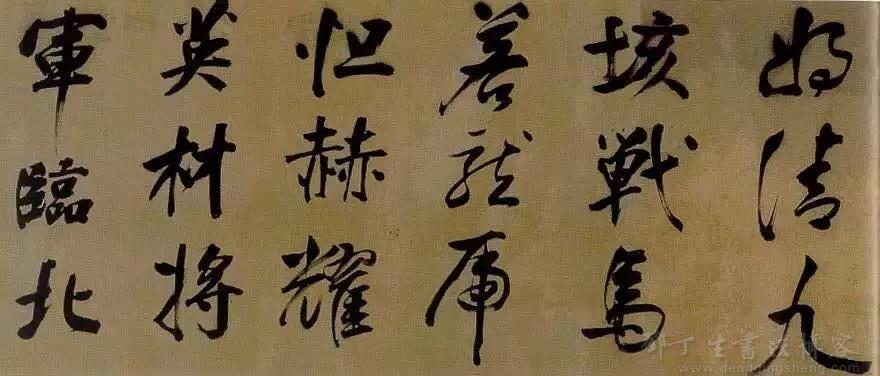 清九
垓戰馬
若龍虎
怛赫耀
英材將
軍臨北
邓丁生書法博客
www.dengdingsheng.com